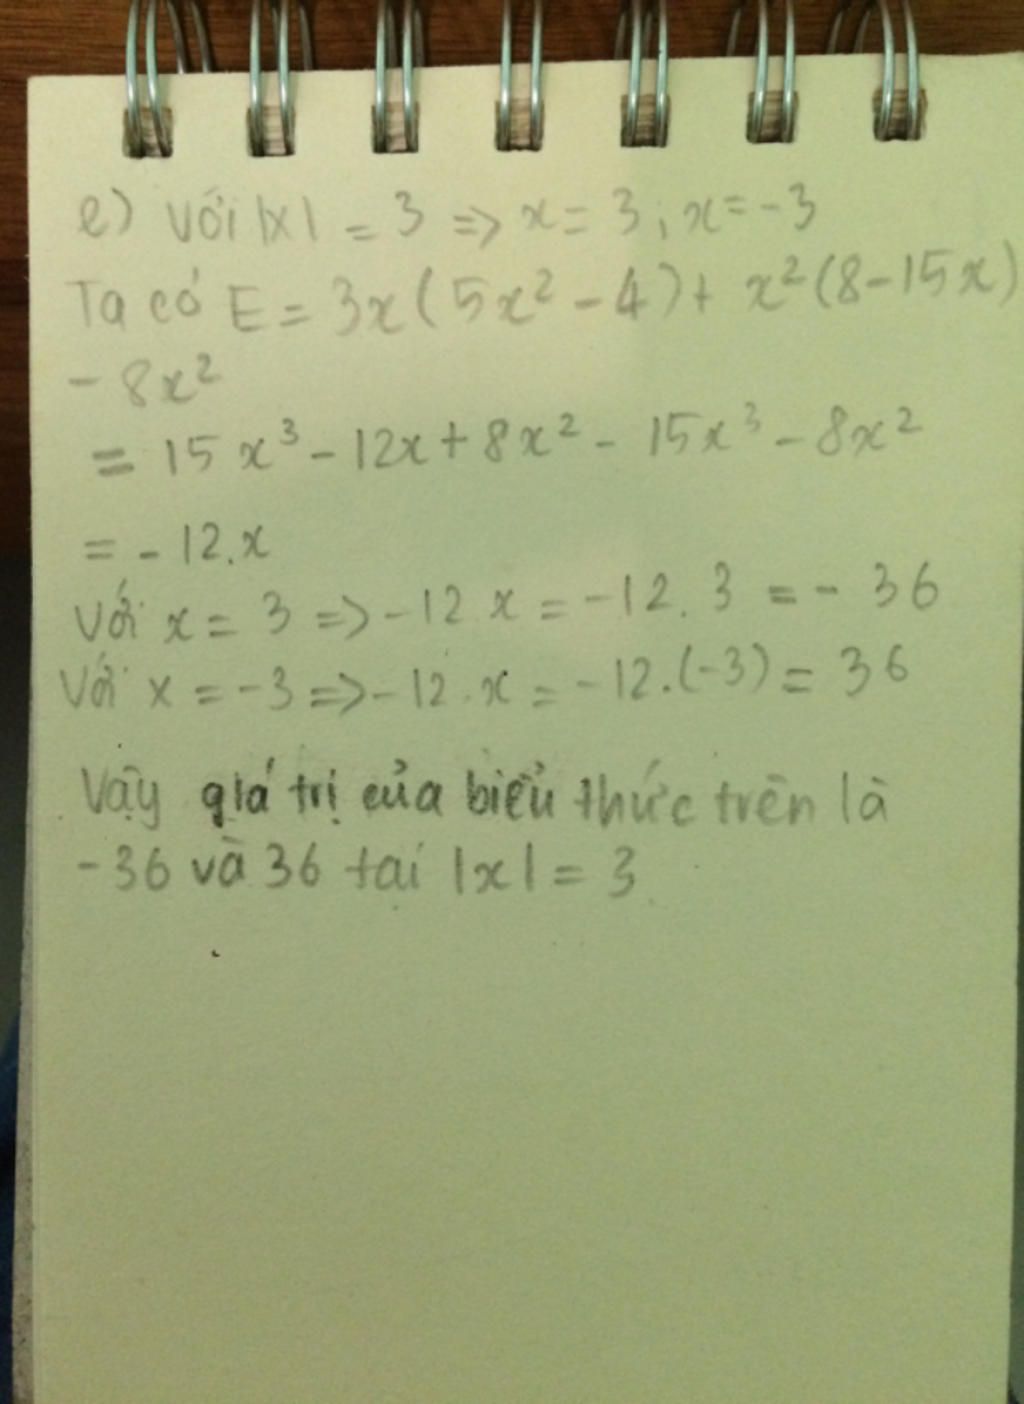 e) Với |x| = 3 => x = 3; x = -3
Ta có E = 3x(5x² - 4) + x²(8 - 15x)
- 8x²
= 15x³ - 12x + 8x² - 15x³ - 8x²
= - 12.x
Với x = 3 => - 12.x = -12.3 = - 36
Với x = -3 => - 12.x = -12.(-3) = 36
Vậy giá trị của biểu thức trên là
-36 và 36 tại |x| = 3